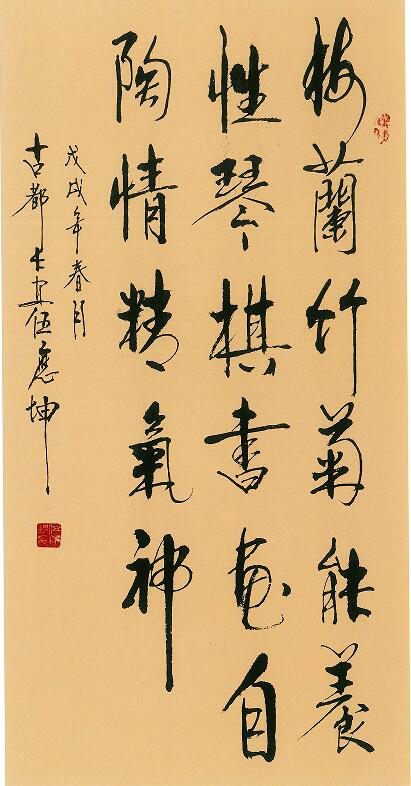 梅蘭竹菊能養
性琴棋書畫自
陶情精氣神
戊戌年春月
古都長安伍應坤